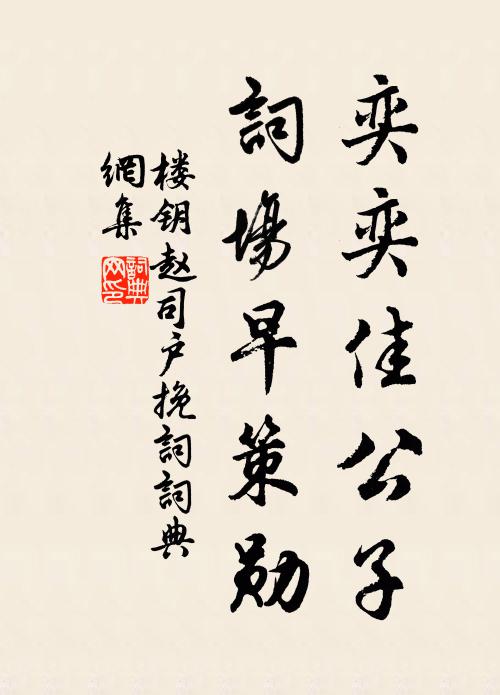 奕奕佳公子
詞場早策勋
楼钥赵司户挽詞詞典
網集
詞典
网印